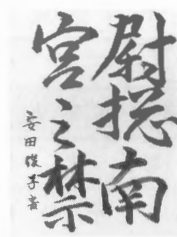 尉摠南
宮之禁
安田俊子書